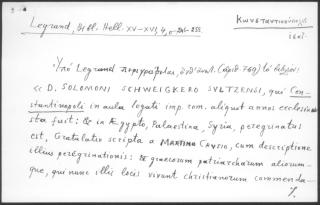 Legrand, Bibl. Hell. XV-XVI, 4,
Κωνσταντινούπολις
Ὑπὸ Legrand περιγράφεται, (ἀριθ. 769) τὸ βιβλίον:
« D. SOLOMONI SCHWEIGKERO SULTZENSI, qui Con-
stantinopoli in aula legati imp. rom. aliquot annos ecclesia
sta fuit: & in Ægypto, Palaestina, Syria, peregrinatus
est, Gratulatio scripta a MARTINO CRUSIO, cum descriptione
illius peregrinationis: & graecorum patriarcharum aliorum-
que, qui nunc illis locis vivunt christianorum commenda-
%.